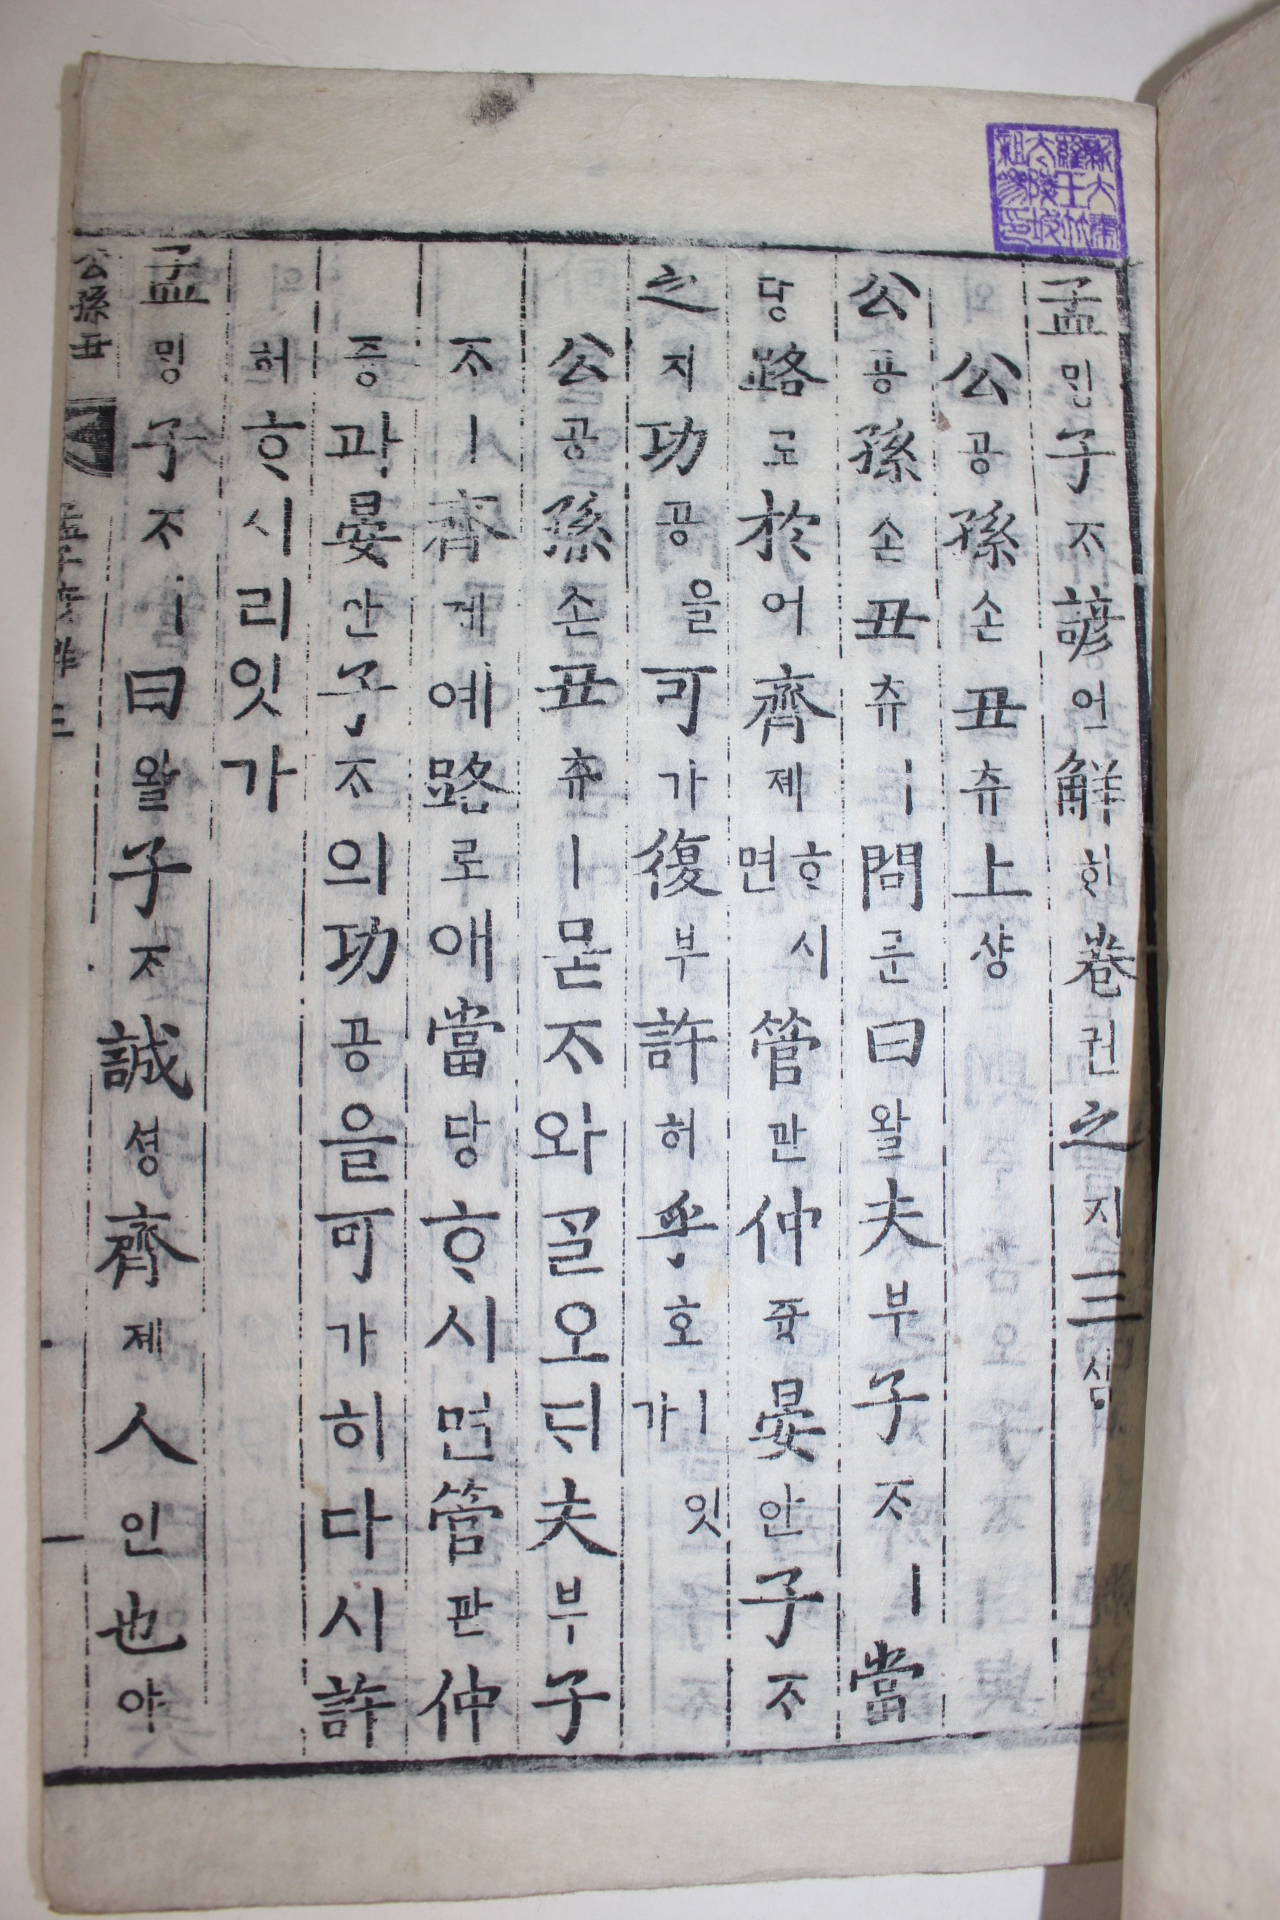 孟ᄆᆡᆼ子ᄌᆞ諺언解ᄒᆡ卷권之지三삼
公공孫손丑츄上샹
公공孫손丑츄ㅣ問문曰왈夫부子ᄌᆞㅣ當
당路로於어齊졔ᄒᆞ시면管관仲듕晏안子ᄌᆞ
之지功공을可가復부許허乎호ㅣ잇가
公공孫손丑츄ㅣ묻ᄌᆞ와ᄀᆞᆯ오ᄃᆡ夫부子
ᄌᆞㅣ齊졔예路로애當당ᄒᆞ시면管관仲
즁과晏안子ᄌᆞ의功공을可가히다시許
허ᄒᆞ시리잇가
孟ᄆᆡᆼ子ᄌᆞㅣ曰왈子ᄌᆞ誠셩齊졔人인也야
公孫丑 孟子諺解 三